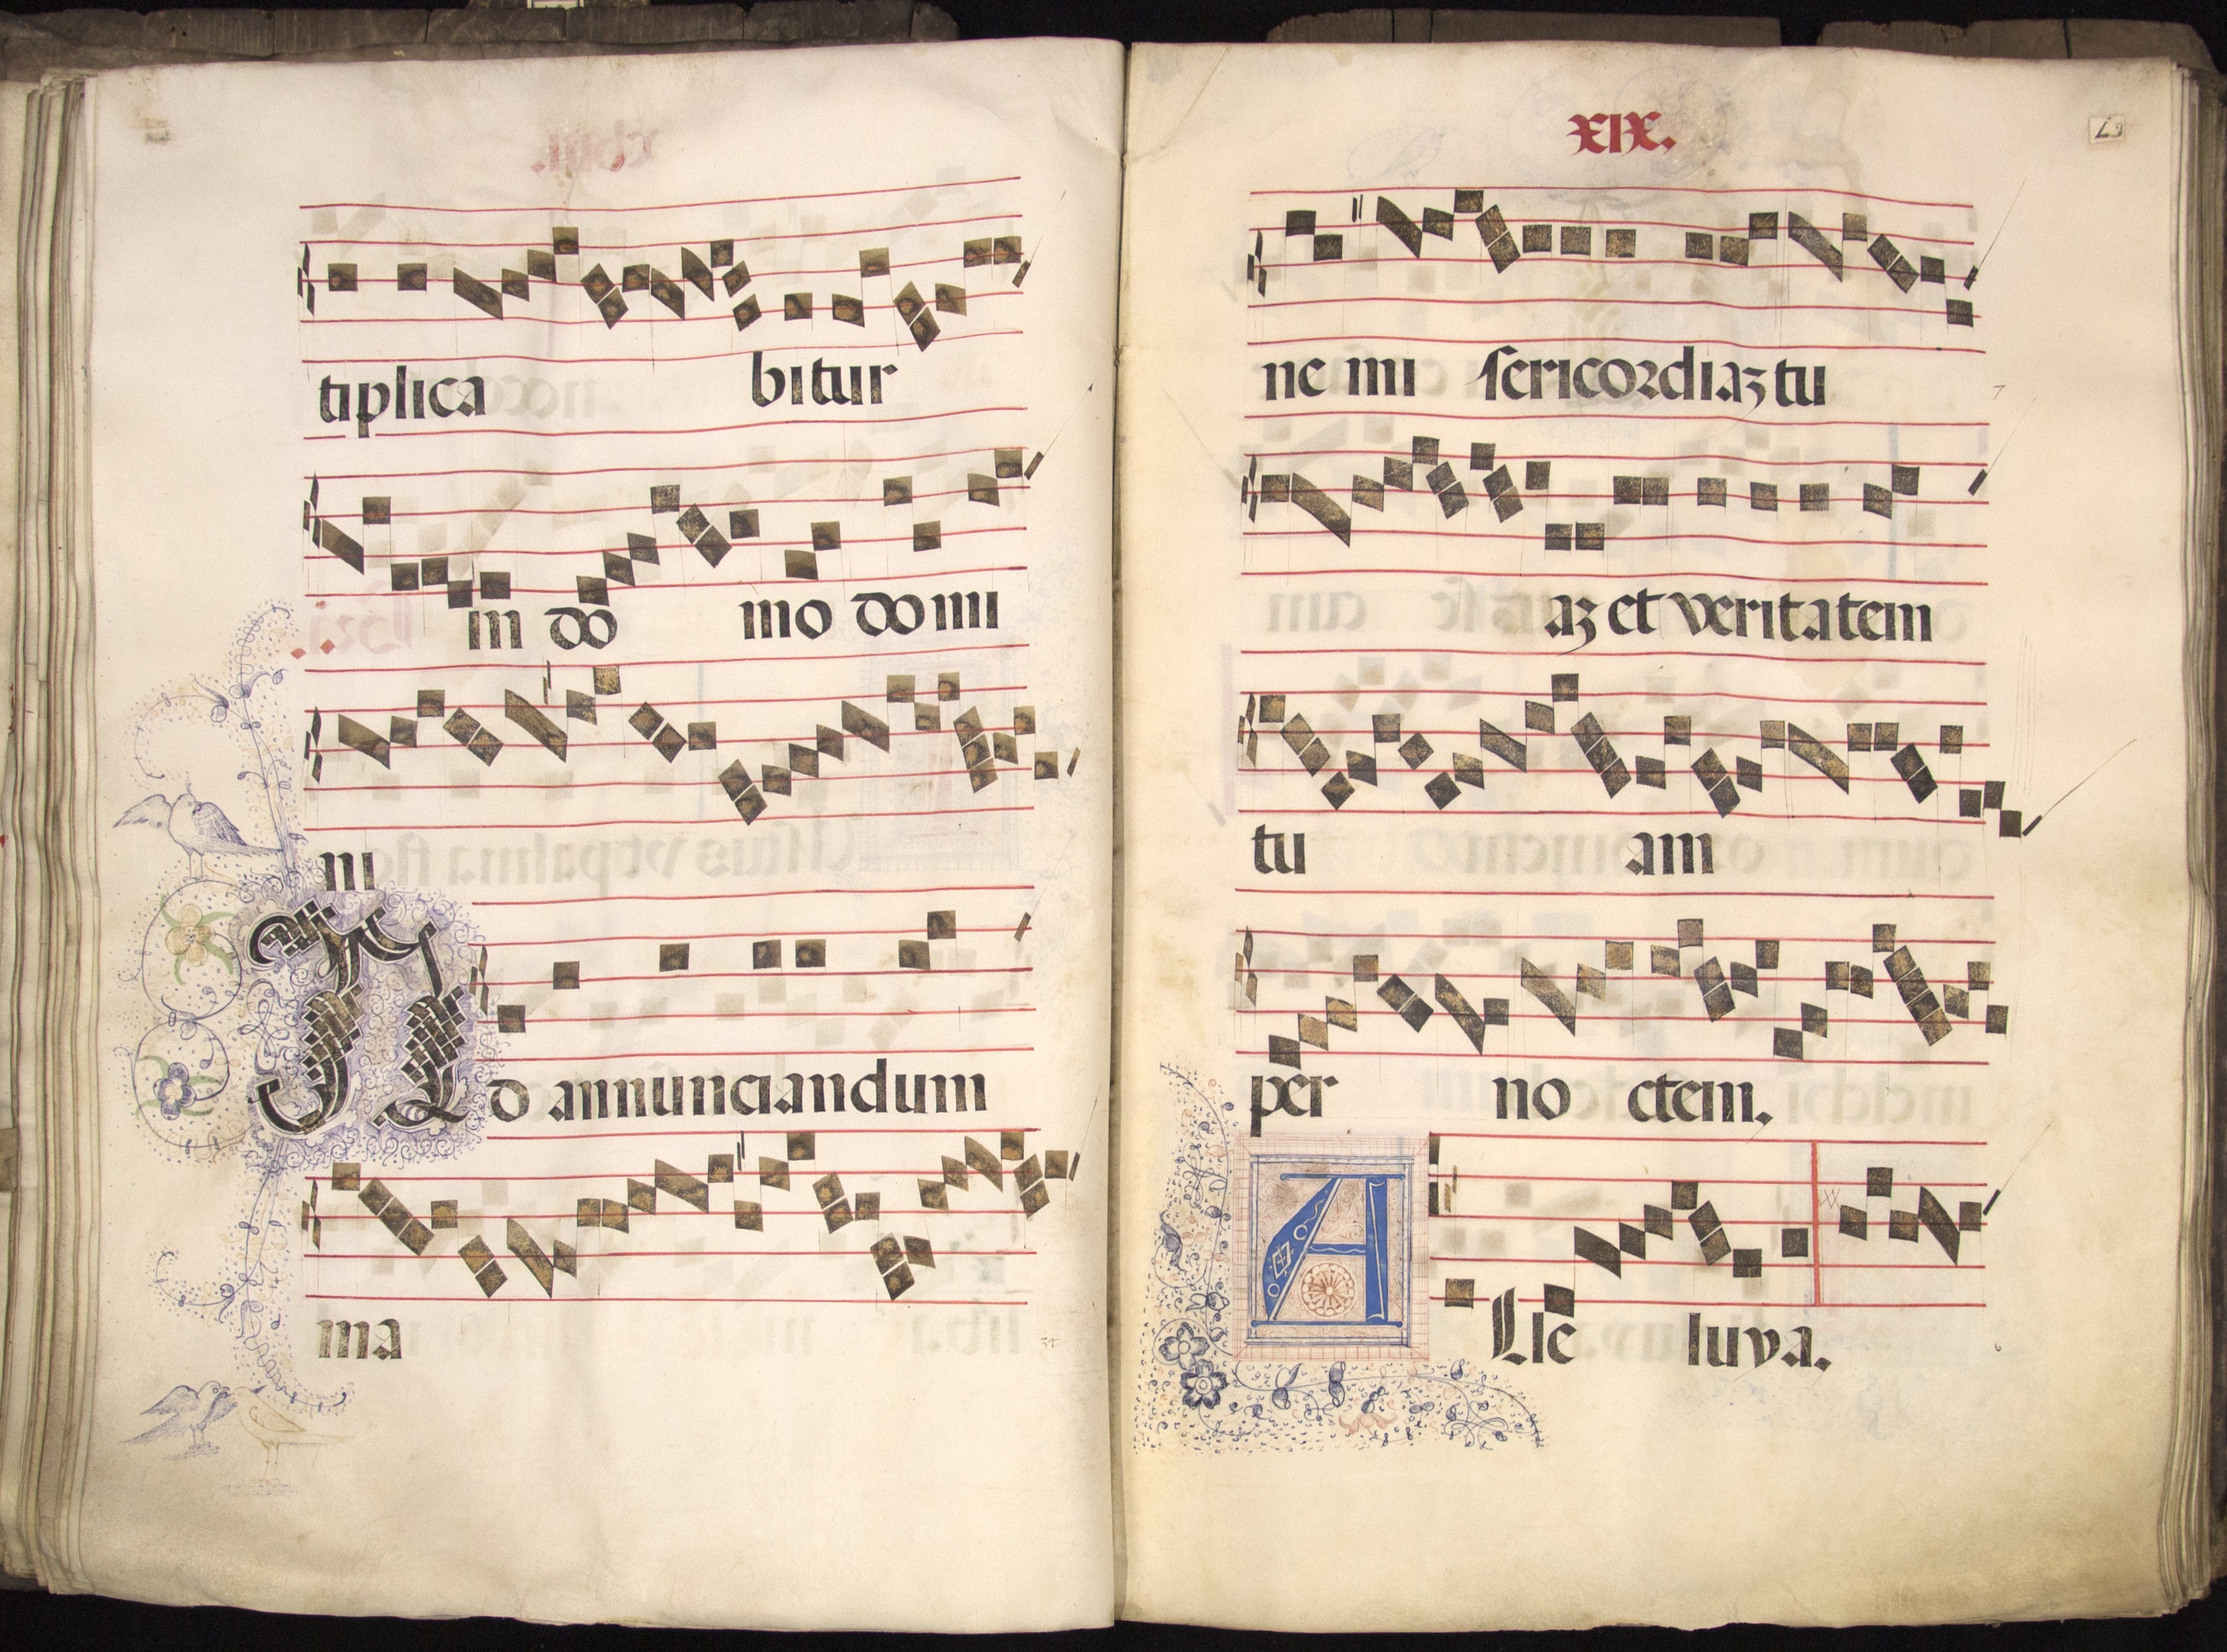 tiplica bitur
in do mo domi
ni
Ad annunciandum
ma
XIX.
ne mi sericordiaꝫ tu
aꝫ et veritatem
tu am
per no ctem.
ALle luya.